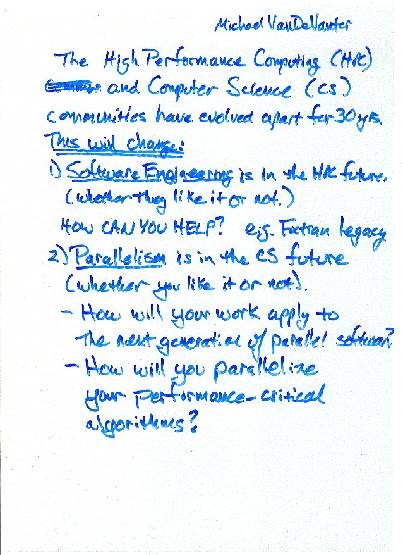 Michael VanDeVanter
The High Performance Computing (HPC)
and Computer Science (CS)
communities have evolved apart for 30 yrs.
This will change:
1) Software Engineering is in the HPC future.
(whether they like it or not.)
HOW CAN YOU HELP? e.g. Fortran legacy
2) Parallelism is in the CS future
(whether you like it or not).
- How will your work apply to
the next generation of parallel software?
- How will you parallelize
your performance-critical
algorithms?